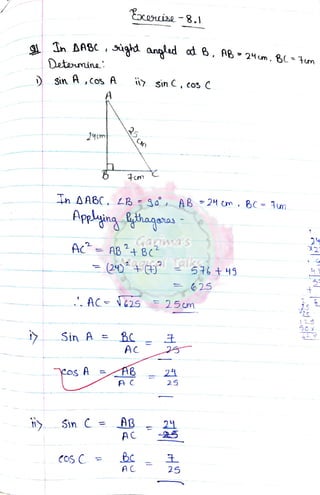 Exercise - 8.1
Q1 In ΔABC, right angled at B, AB = 24cm, BC = 7cm
Determine:
i) sin A, cos A ii) sin C, cos C
A
24cm 25cm
B 7cm C
In ΔABC, ∠B = 90°, AB = 24 cm, BC = 7cm
Applying Pythagoras -
AC² = AB² + BC²
= (24)² + (7)² = 576 + 49
= 625
∴ AC = √625 = 25cm
i) Sin A = BC/AC = 7/25
cos A = AB/AC = 24/25
ii) Sin C = AB/AC = 24/25
cos C = BC/AC = 7/25